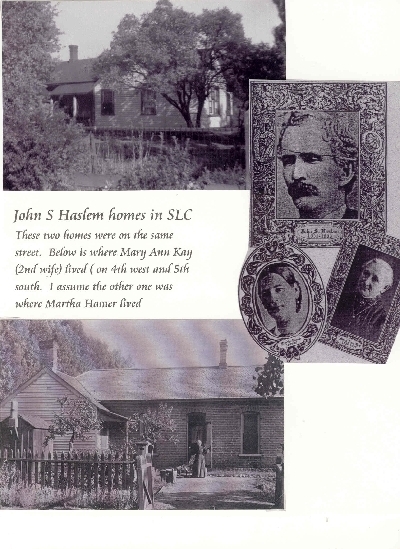 John S Haslem homes in SLC
These two homes were on the same
street. Below is where Mary Ann Kay
(2nd wife) lived ( on 4th west and 5th
south. I assume the other one was
where Martha Hamer lived
John S. Haslem